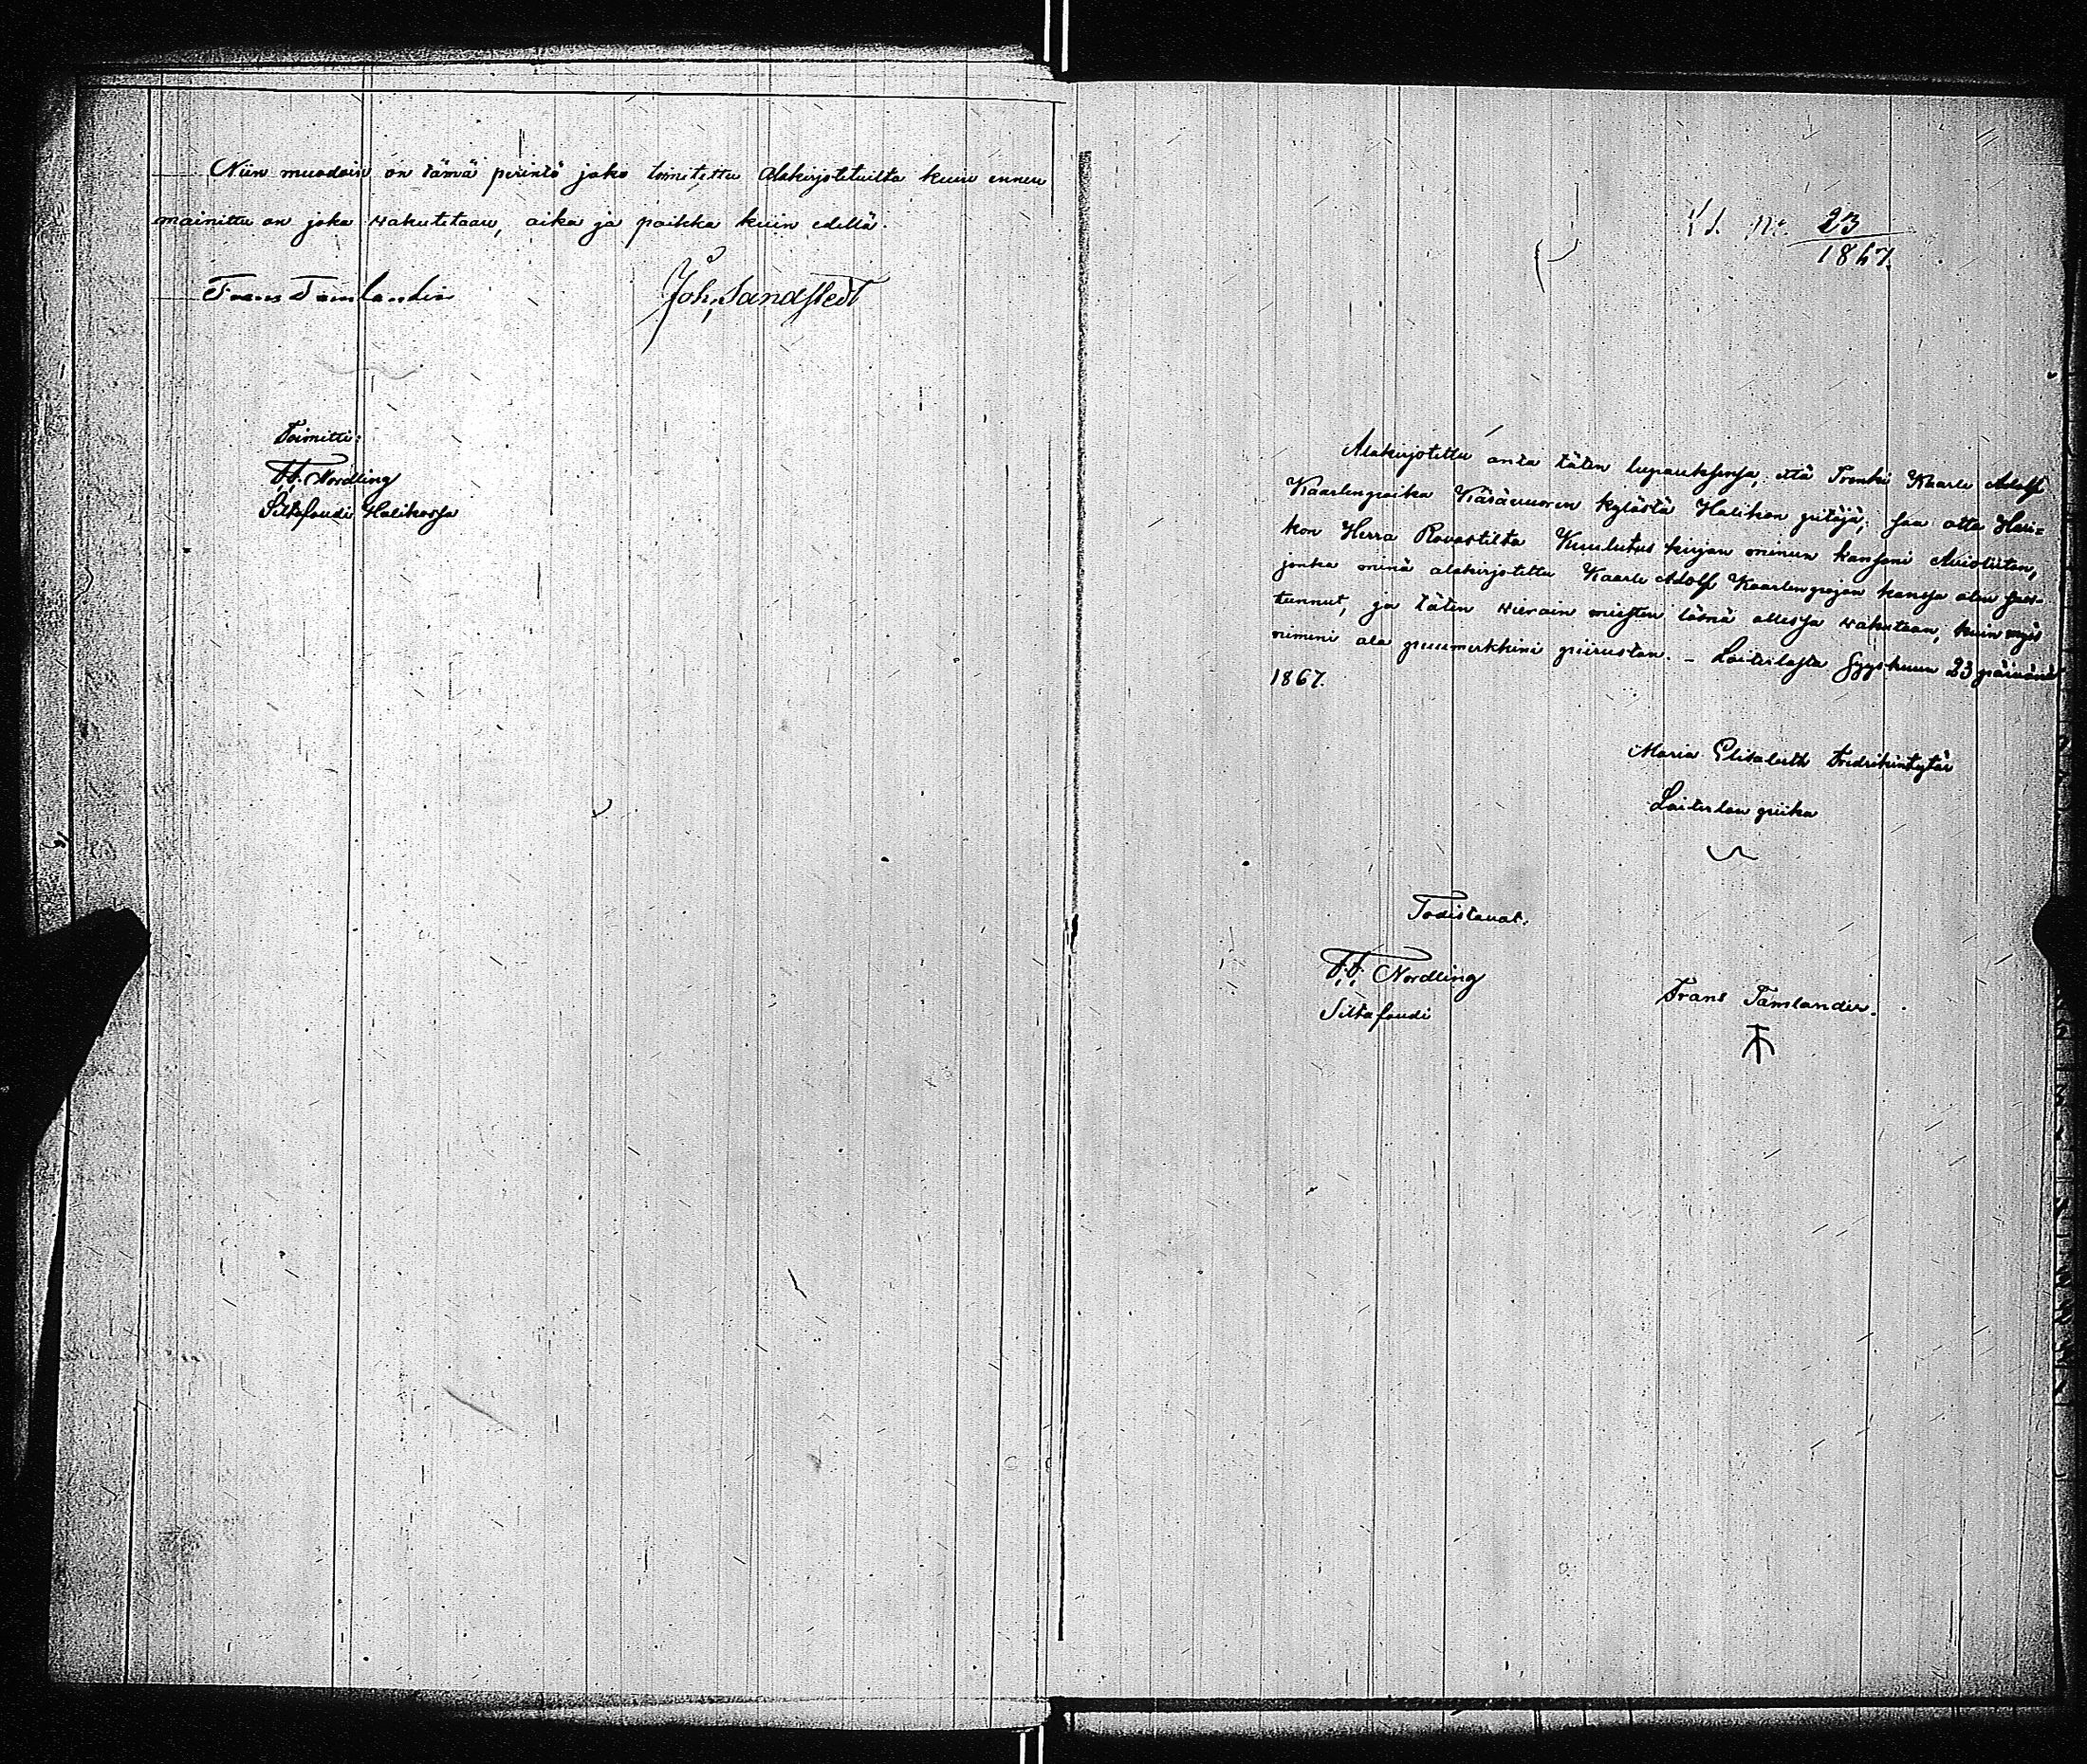 Niin muodoin on tämä perintö jako toimitettu Alakirjotetuilta kuin ennen
mainittu on joka wakutetaan, aika ja paikka kuin edellä.
Frans Tamlander
Joh, Sandstedt
Toimitti:
F. F. Nordling
Siltafoudi Halikossa
23
1867.
Alakirjotettu anta täten lupauksensa, että Trenki Kaarle Adolf
Kaarlenpoika Käsävuoren kylästä Halikon pitäjä, saa otta Hali=
kon Herra Rovastilta Kuulutus kirjan minun kansani Avioliiton,
jonka minä alakirjotettu Kaarle Adolf Kaarlenpojan kanssa olen suos-
tunnut, ja täten wierain miesten läsnä ollessa wakutaan, kuin myös
nimeni ala puumerkkini piirustan. – Laiterlasta Syyskuun 23 päivänä
1867.
Maria Elisabeth Fredrikintytär
Laiterlan piika
Todistavat.
F. F. Nordling
Siltafoudi
Frans Tamlander.